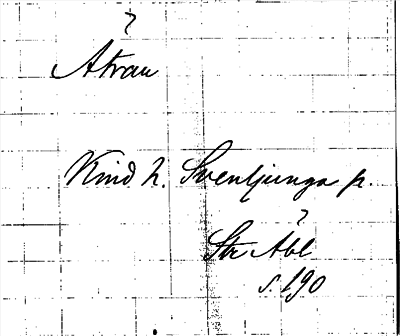 Ätran
Kind h. Svenljunga p.
Str Äbl
s. 190